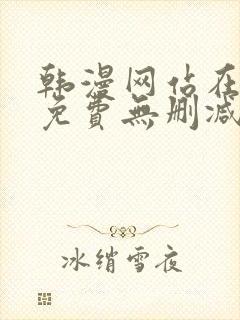 韩漫网站在
免費無删减
冰绡雪夜